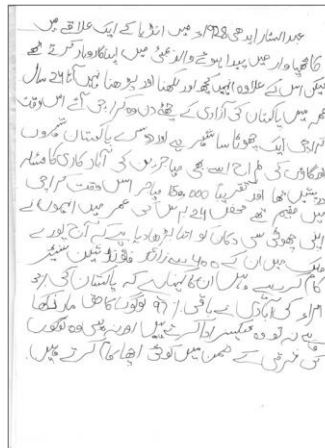 عبدالستار ایدھی 1928ء میں انڈیا کے ایک علاقے میں
کاٹھیاوار میں پیدا ہوئے والد بمبئی میں اپنا کاروبار کرتے تھے
لیکن اس کے علاوہ انہیں کچھ اور لکھنا اور پڑھنا نہیں آتا 24 سال
عمر میں پاکستان کی آزادی کے چھ دن وہ کراچی آئے اس وقت
کراچی ایک چھوٹا سا شہر ہے اور دوسرے پاکستان شہروں
اور گاؤں کی طرح اسے بھی مہاجرین کی آباد کاری کا مسئلہ
درپیش تھا اور تقریباً 150,000 مہاجر اس وقت کراچی
میں مقیم تھے محض 24 برس کی عمر میں انہوں نے
اپنی چھوٹی سی دکان کو اتنا بڑھا دیا ہے کہ آج پورے
ملک میں ان کے 400 سے زائد سینٹر
کام کر رہے ہیں ان کا کہنا ہے کہ پاکستان کی 3٪
امراء کی آبادی نے باقی 97٪ لوگوں کا حق مار رکھا
ہے نہ تو وہ ٹیکس ادا کرتے ہیں اور نہ ہی وہ لوگوں
کی ضمن میں کوئی اچھا کام کرتے ہیں۔